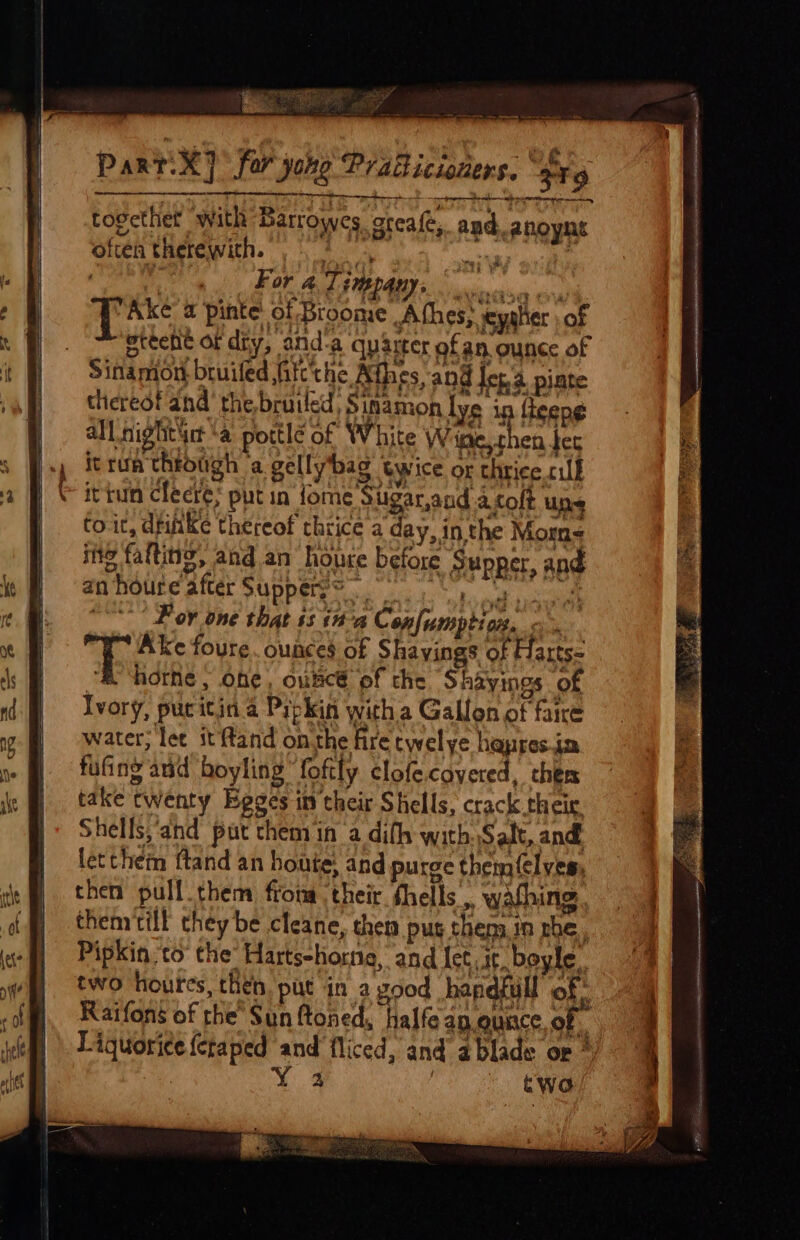 Part.X] for yong Practicioners. 319
together with Barrowes greaſe, and anoynt
often therewith.
For a Timpany.
TAke a pinte of Broome Aſhes, eyther of
greene or dry, and a quarter of an ounce of
Sinamon bruiſed, ſift the Aſhes, and let a pinte
thereof and the bruiſed Sinamon lye in ſteepe
all night in a pottle of White Wine, then let
it run through a gelly bag twice or thrice till
it run cleere, put in ſome Sugar, and a toſt
to it, drinke thereof thrice a day, in the Morn-
ing faſting, and an houre before Supper, and
an houre after Supper.
For one that is in a Conſumption.
TAke foure ounces of Shavings of Harts-
horne, one ounce of the Shavings of
Ivory, put it in a Pipkin with a Gallon of faire
water, let it ſtand on the fire twelve houres in
fuſing and boyling ſoftly cloſe covered, then
take twenty Egges in their Shells, crack their
Shells, and put them in a diſh with Salt, and
let them ſtand an houre, and purge themſelves,
then pull them from their ſhells, waſhing
them till they be cleane, then put them in the
Pipkin to the Harts-horne, and let it boyle
two houres, then put in a good handfull of
Raiſons of the Sun ſtoned, halfe an ounce of
Liquorice ſcraped and ſliced, and a blade or
Y 3 two